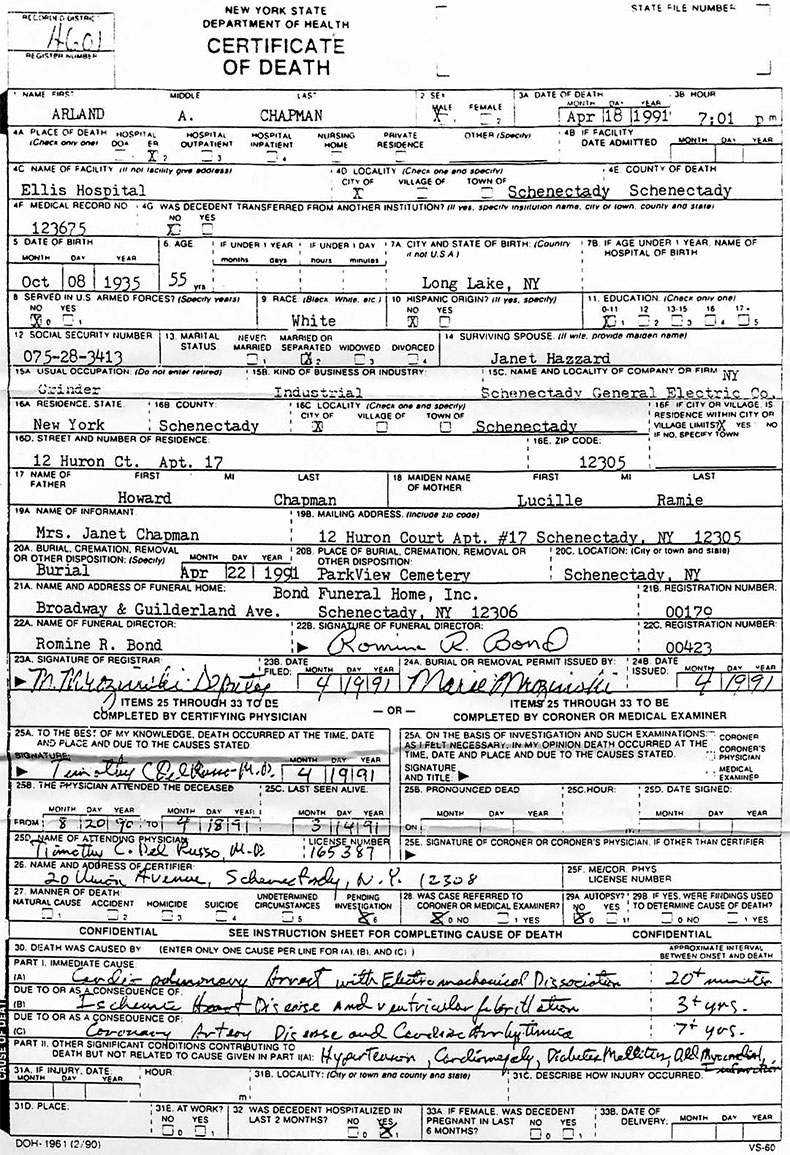 NEW YORK STATE
DEPARTMENT OF HEALTH
CERTIFICATE
OF DEATH
RECORDED DISTRICT
4601
REGISTER NUMBER
STATE FILE NUMBER
1 NAME FIRST MIDDLE LAST 2 SEX 3A DATE OF DEATH 3B HOUR
MALE FEMALE MONTH DAY YEAR
ARLAND A. CHAPMAN X 1 2 Apr 18 1991 7:01 pm
4A PLACE OF DEATH HOSPITAL HOSPITAL HOSPITAL NURSING PRIVATE OTHER (Specify) 4B IF FACILITY MONTH DAY YEAR
(Check only one) DOA ER OUTPATIENT INPATIENT HOME RESIDENCE DATE ADMITTED
X 2 3 4
4C NAME OF FACILITY (If not facility give address) 4D LOCALITY (Check one and specify) 4E COUNTY OF DEATH
CITY OF VILLAGE OF TOWN OF
Ellis Hospital X Schenectady Schenectady
4F MEDICAL RECORD NO 4G WAS DECEDENT TRANSFERRED FROM ANOTHER INSTITUTION? (If yes, specify institution name, city or town, county and state)
NO YES
123675 X
5 DATE OF BIRTH 6. AGE IF UNDER 1 YEAR IF UNDER 1 DAY 7A CITY AND STATE OF BIRTH: (Country if not U.S.A) 7B. IF AGE UNDER 1 YEAR, NAME OF HOSPITAL OF BIRTH
MONTH DAY YEAR months days hours minutes
Oct 08 1935 55 yrs Long Lake, NY
8 SERVED IN U.S. ARMED FORCES? (Specify years) 9. RACE (Black, White, etc.) 10 HISPANIC ORIGIN? (If yes, specify) 11. EDUCATION. (Check only one)
NO YES NO YES 0-11 12 13-15 16 17+
X 0 1 White X X 1 2 3 4 5
12 SOCIAL SECURITY NUMBER 13. MARITAL STATUS NEVER MARRIED MARRIED OR SEPARATED WIDOWED DIVORCED 14 SURVIVING SPOUSE. (If wife, provide maiden name)
075-28-3413 1 X 2 3 4 Janet Hazzard
15A USUAL OCCUPATION: (Do not enter retired) 15B. KIND OF BUSINESS OR INDUSTRY: 15C. NAME AND LOCALITY OF COMPANY OR FIRM NY
Grinder Industrial Schenectady General Electric Co.
16A RESIDENCE, STATE. 16B COUNTY: 16C LOCALITY (Check one and specify) 16F IF CITY OR VILLAGE, IS
CITY OF VILLAGE OF TOWN OF RESIDENCE WITHIN CITY OR
New York Schenectady X Schenectady VILLAGE LIMITS? X YES NO
16D. STREET AND NUMBER OF RESIDENCE: 16E. ZIP CODE: IF NO, SPECIFY TOWN
12 Huron Ct. Apt. 17 12305
17 NAME OF FATHER FIRST MI LAST 18 MAIDEN NAME OF MOTHER FIRST MI LAST
Howard Chapman Lucille Ramie
19A NAME OF INFORMANT 19B. MAILING ADDRESS. (Include zip code)
Mrs. Janet Chapman 12 Huron Court Apt. #17 Schenectady, NY 12305
20A. BURIAL, CREMATION, REMOVAL OR OTHER DISPOSITION: (Specify) MONTH DAY YEAR 20B. PLACE OF BURIAL, CREMATION, REMOVAL OR OTHER DISPOSITION: 20C. LOCATION: (City or town and state)
Burial Apr 22 1991 ParkView Cemetery Schenectady, NY
21A. NAME AND ADDRESS OF FUNERAL HOME: 21B. REGISTRATION NUMBER.
Bond Funeral Home, Inc.
Broadway & Guilderland Ave. Schenectady, NY 12306 00179
22A. NAME OF FUNERAL DIRECTOR: 22B. SIGNATURE OF FUNERAL DIRECTOR: 22C. REGISTRATION NUMBER:
Romine R. Bond Romine R. Bond 00423
23A. SIGNATURE OF REGISTRAR: 23B. DATE FILED: MONTH DAY YEAR 24A. BURIAL OR REMOVAL PERMIT ISSUED BY: 24B. DATE ISSUED: MONTH DAY YEAR
M. Mrozinski Deputy 4 19 91 Marie Mrozinski 4 19 91
ITEMS 25 THROUGH 33 TO BE COMPLETED BY CERTIFYING PHYSICIAN
— OR —
ITEMS 25 THROUGH 33 TO BE COMPLETED BY CORONER OR MEDICAL EXAMINER
25A. TO THE BEST OF MY KNOWLEDGE, DEATH OCCURRED AT THE TIME, DATE
AND PLACE AND DUE TO THE CAUSES STATED
SIGNATURE
Timothy C Del Russo M.D. 4 19 91
25A. ON THE BASIS OF INVESTIGATION AND SUCH EXAMINATIONS
AS I FELT NECESSARY, IN MY OPINION DEATH OCCURRED AT THE
TIME, DATE AND PLACE AND DUE TO THE CAUSES STATED.
SIGNATURE AND TITLE
CORONER
CORONER'S PHYSICIAN
MEDICAL EXAMINER
25B. THE PHYSICIAN ATTENDED THE DECEASED 25C. LAST SEEN ALIVE. 25B. PRONOUNCED DEAD 25C. HOUR: 25D. DATE SIGNED:
MONTH DAY YEAR MONTH DAY YEAR MONTH DAY YEAR MONTH DAY YEAR MONTH DAY YEAR
FROM 8 20 90 TO 4 18 91 3 14 91 ON m
25D. NAME OF ATTENDING PHYSICIAN LICENSE NUMBER 25E. SIGNATURE OF CORONER OR CORONER'S PHYSICIAN, IF OTHER THAN CERTIFIER
Timothy C. Del Russo, M.D. 165387
26. NAME AND ADDRESS OF CERTIFIER: 25F. ME/COR. PHYS LICENSE NUMBER
20 Union Avenue, Schenectady, N.Y. 12308
27. MANNER OF DEATH: UNDETERMINED PENDING 28. WAS CASE REFERRED TO 29A AUTOPSY? 29B IF YES, WERE FINDINGS USED
NATURAL CAUSE ACCIDENT HOMICIDE SUICIDE CIRCUMSTANCES INVESTIGATION CORONER OR MEDICAL EXAMINER? NO YES TO DETERMINE CAUSE OF DEATH?
1 2 3 4 5 6 0 NO 1 YES 0 1 0 NO 1 YES
CONFIDENTIAL SEE INSTRUCTION SHEET FOR COMPLETING CAUSE OF DEATH CONFIDENTIAL
30. DEATH WAS CAUSED BY (ENTER ONLY ONE CAUSE PER LINE FOR (A), (B), AND (C) ) APPROXIMATE INTERVAL BETWEEN ONSET AND DEATH
PART I. IMMEDIATE CAUSE:
(A) Cardio pulmonary Arrest with Electromechanical Dissociation 20+ minutes
DUE TO OR AS A CONSEQUENCE OF:
(B) Ischemic Heart Disease and ventricular fibrillation 3+ yrs.
DUE TO OR AS A CONSEQUENCE OF:
(C) Coronary Artery Disease and Cardiac Arrhythmia 7+ yrs.
PART II. OTHER SIGNIFICANT CONDITIONS CONTRIBUTING TO
DEATH BUT NOT RELATED TO CAUSE GIVEN IN PART I(A): Hypertension, Cardiomegaly, Diabetes Mellitus, old Myocardial Infarction
CAUSE OF DEATH
31A. IF INJURY, DATE: HOUR: 31B. LOCALITY: (City or town and county and state) 31C. DESCRIBE HOW INJURY OCCURRED:
MONTH DAY YEAR
m
31D. PLACE. 31E. AT WORK? 32 WAS DECEDENT HOSPITALIZED IN LAST 2 MONTHS? 33A IF FEMALE, WAS DECEDENT PREGNANT IN LAST 6 MONTHS? 33B. DATE OF DELIVERY: MONTH DAY YEAR
NO YES NO YES NO YES
0 1 0 X 1 0 1
DOH-1961 (2/90) VS-60